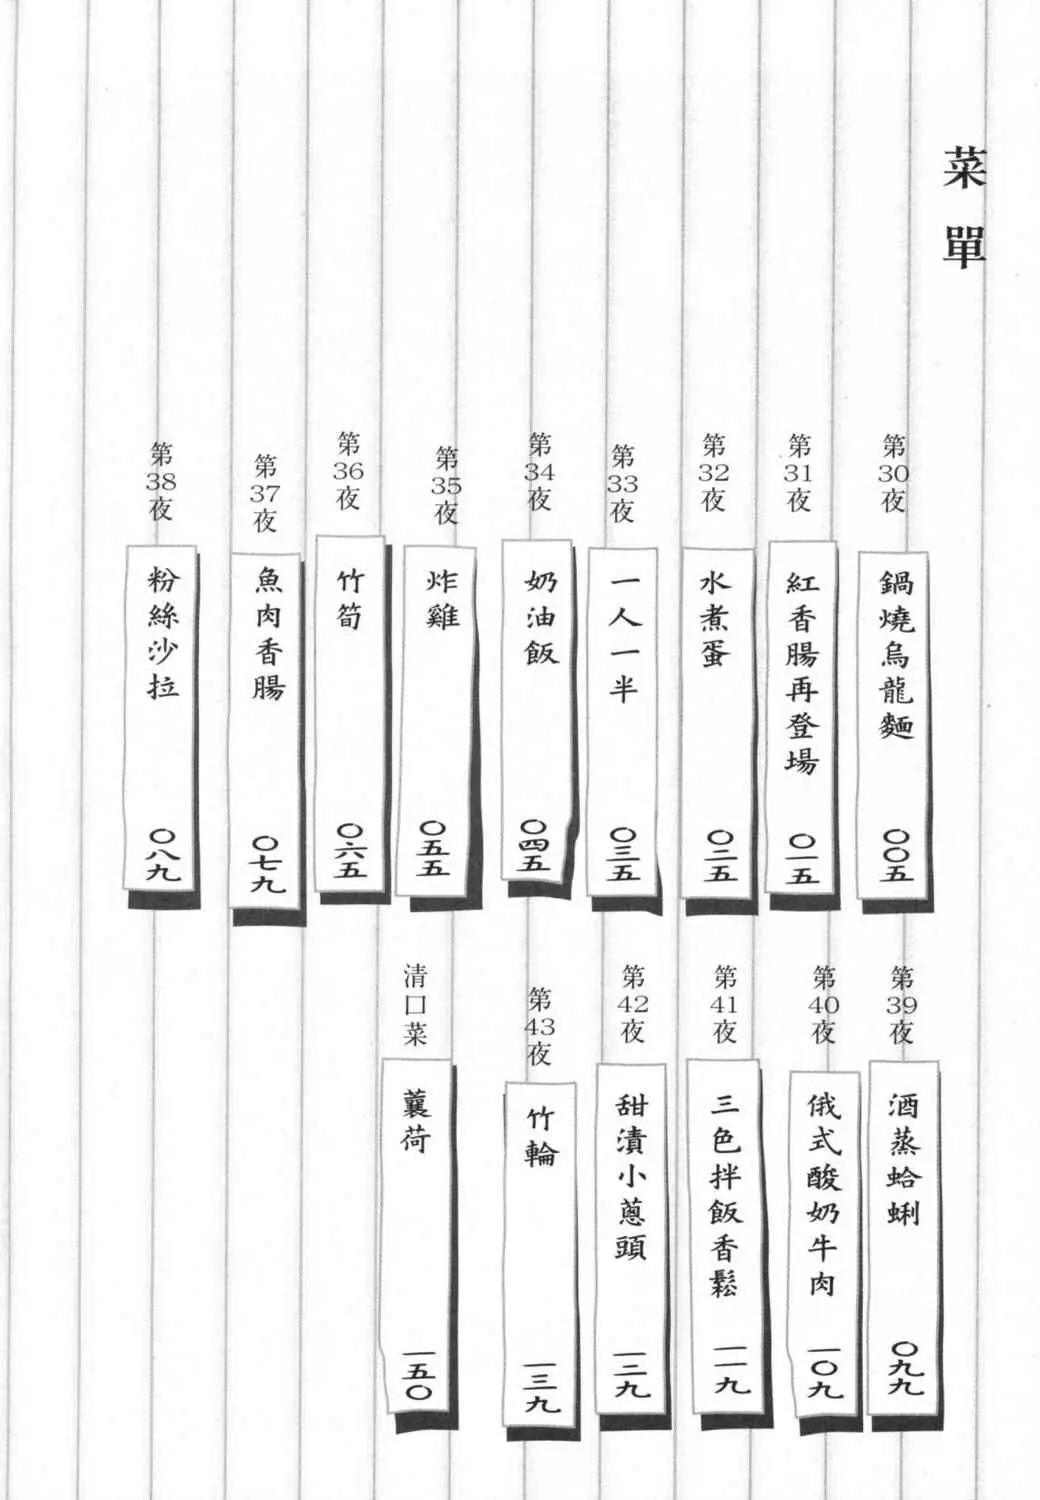 菜單
第30夜
鍋燒烏龍麵
〇〇五
第31夜
紅香腸再登場
〇一五
第32夜
水煮蛋
〇二五
第33夜
一人一半
〇三五
第34夜
奶油飯
〇四五
第35夜
炸雞
〇五五
第36夜
竹筍
〇六五
第37夜
魚肉香腸
〇七九
第38夜
粉絲沙拉
〇八九
第39夜
酒蒸蛤蜊
〇九九
第40夜
俄式酸奶牛肉
一〇九
第41夜
三色拌飯香鬆
一一九
第42夜
甜漬小蔥頭
一三九
第43夜
竹輪
一三九
清口菜
蘘荷
一五〇